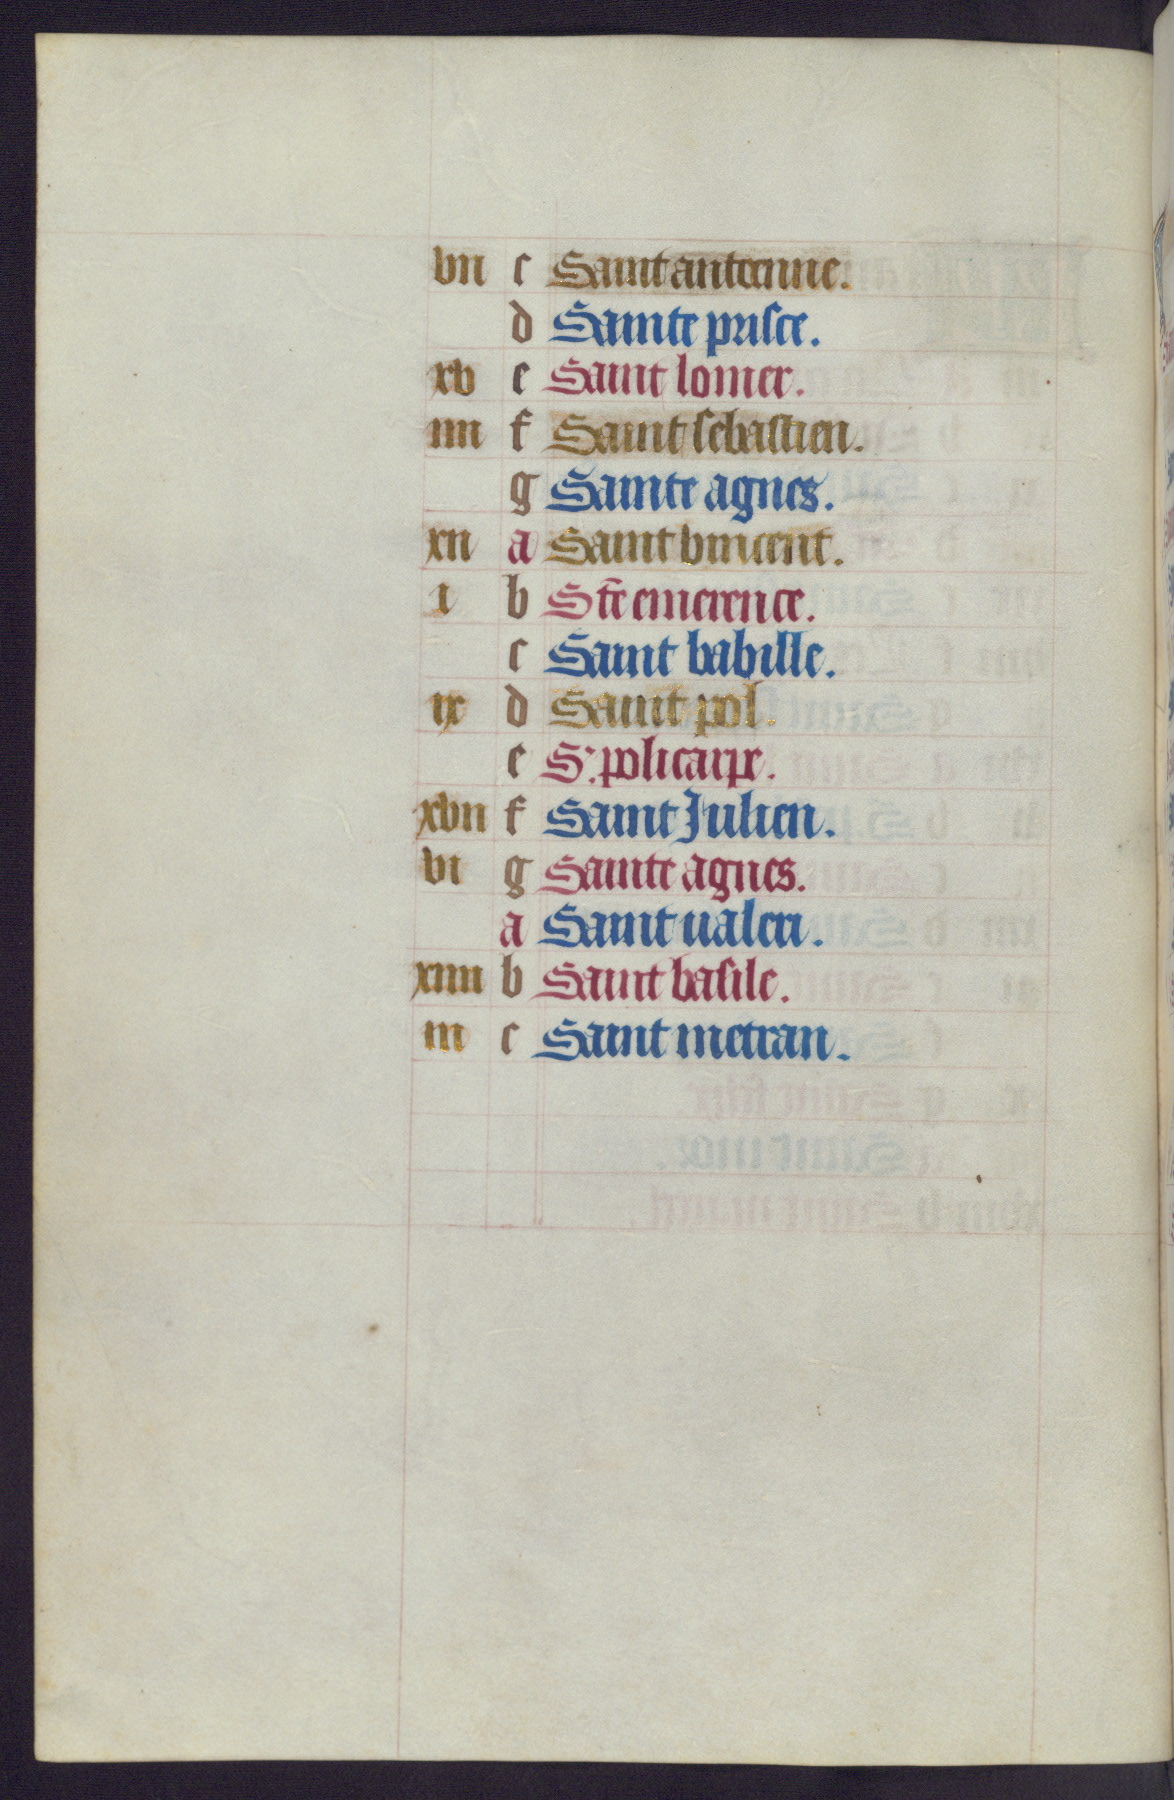 vii c Saint anteenne.
d Sainte prisce.
xv e Saint lomer.
iiii f Saint sebastien.
g Sainte agnes.
xii a Saint vincent.
i b Ste emerence.
c Saint babille.
ix d Saint pol.
e S. policarpe.
xvii f Saint Julien.
vi g Sainte agnes.
a Saint valeri.
xiiii b Saint basile.
iii c Saint metran.